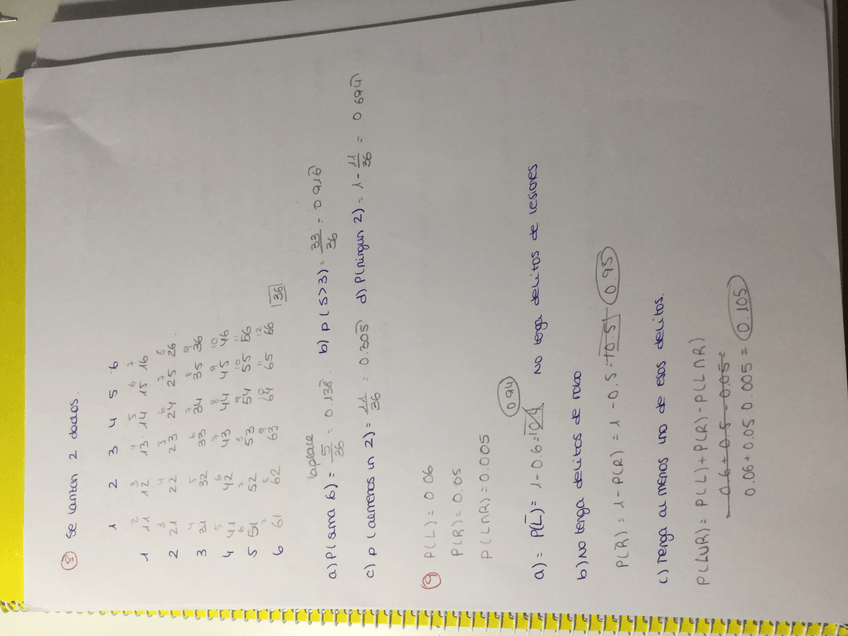 8 Se lanzan 2 dados
1 2 3 4 5 6
2 3 4 5 6 7
1 11 12 13 14 15 16
3 4 5 6 7 8
2 21 22 23 24 25 26.
4 5 6 7 8 9
3 31 32 33 34 35 36
5 6 7 8 9 10
4 41 42 43 44 45 46
6 7 8 9 10 11
5 51 52 53 54 55 56
7 8 9 10 11 12
6 61 62 63 64 65 66 36
laplace
a) P(suma 6) = 5/36 = 0.138. b) P(S>3) = 33/36 = 0.916
c) P(almenos un 2) = 11/36 = 0.305 d) P(ningun 2) = 1 - 11/36 = 0.694
9 P(L) = 0.06
P(R) = 0.05
P(L∩R) = 0.005
0.94
a) = P(L̄) = 1 - 0.6 = 0.4 No tenga delitos de lesiones
b) No tenga delitos de robo
P(R̄) = 1 - P(R) = 1 - 0.5 = 0.5 0.95
c) Tenga al menos uno de esos delitos.
P(LUR) = P(L) + P(R) - P(L∩R)
0.6 + 0.5 - 0.05 =
0.06 + 0.05 0.005 = 0.105